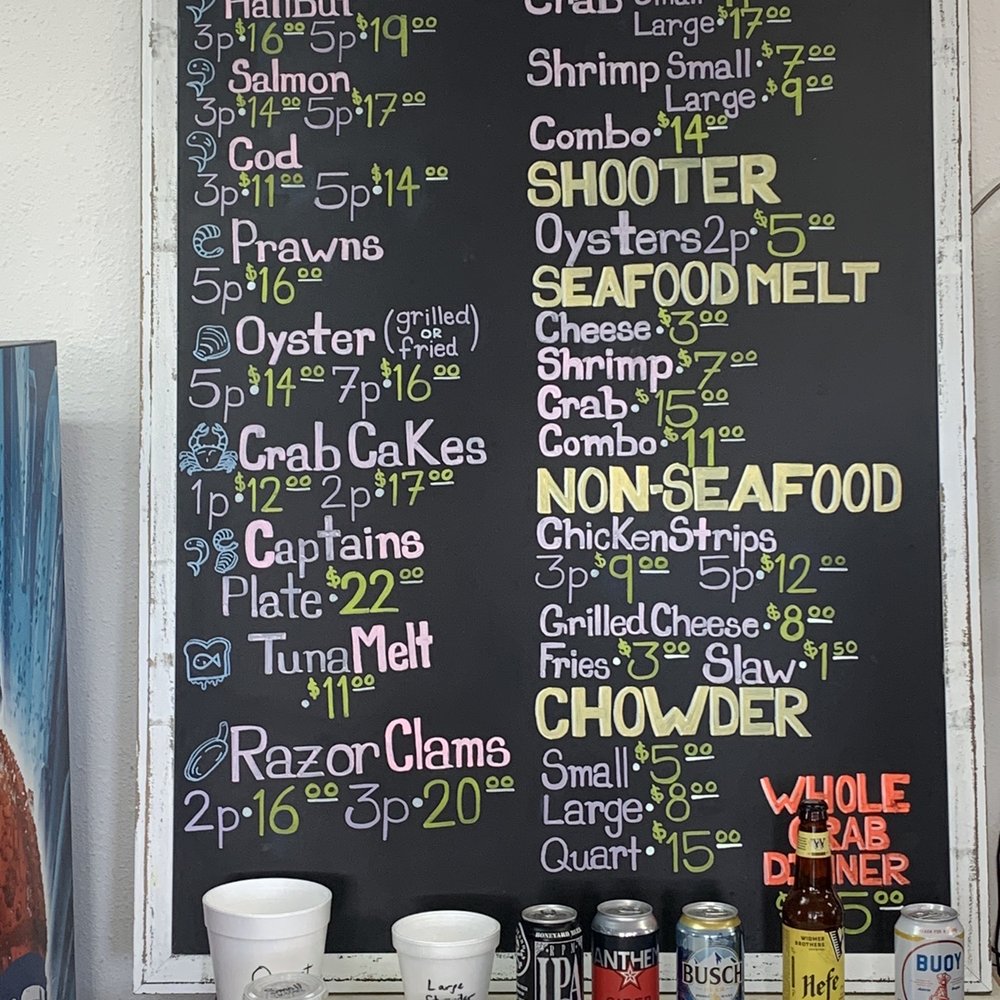 Halibut
3p·$16⁰⁰ 5p·$19⁰⁰
Salmon
3p·$14⁰⁰ 5p·$17⁰⁰
Cod
3p·$11⁰⁰ 5p·$14⁰⁰
Prawns
5p·$16⁰⁰
Oyster (grilled OR fried)
5p·$14⁰⁰ 7p·$16⁰⁰
Crab Cakes
1p·$12⁰⁰ 2p·$17⁰⁰
Captains
Plate·$22⁰⁰
Tuna Melt
·$11⁰⁰
Razor Clams
2p·16⁰⁰ 3p·20⁰⁰
Crab Small
Large·$17⁰⁰
Shrimp Small·$7⁰⁰
Large·$9⁰⁰
Combo·$14⁰⁰
SHOOTER
Oysters 2p·$5⁰⁰
SEAFOOD MELT
Cheese·$3⁰⁰
Shrimp·$7⁰⁰
Crab·$15⁰⁰
Combo·$11⁰⁰
NON-SEAFOOD
Chicken Strips
3p·$9⁰⁰ 5p·$12⁰⁰
Grilled Cheese·$8⁰⁰
Fries·$3⁰⁰ Slaw·$1⁵⁰
CHOWDER
Small·$5⁰⁰
Large·$8⁰⁰
Quart·$15⁰⁰
WHOLE
CRAB
DINNER
5⁰⁰
Quart
Large
BONEYARD BEER
RPM
IPA
ANTHEM
CIDER
BUSCH
W
WIDMER
BROTHERS
Hefe
BUOY